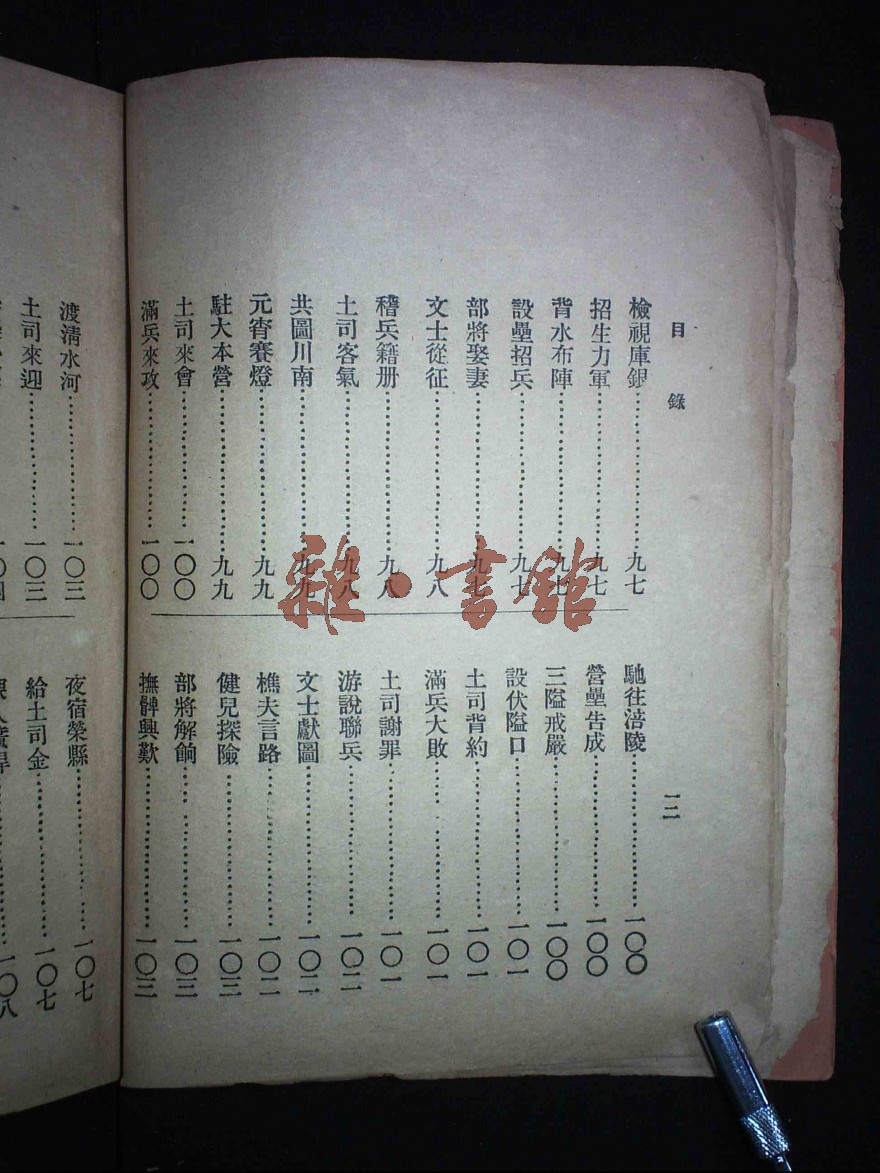 目錄
檢視庫銀……九七
招生力軍……九七
背水布陣……九七
設壘招兵……九七
部將娶妻……九七
文士從征……九八
稽兵籍册……九八
土司客氣……九八
共圖川南……九九
元宵賽燈……九九
駐大本營……九九
土司來會……一〇〇
滿兵來攻……一〇〇
馳往涪陵……一〇〇
營壘告成……一〇〇
三隘戒嚴……一〇〇
設伏隘口……一〇一
土司背約……一〇一
滿兵大敗……一〇一
土司謝罪……一〇一
游說聯兵……一〇二
文士獻圖……一〇二
樵夫言路……一〇二
健兒探險……一〇三
部將解餉……一〇三
撫髀興歎……一〇三
一二
渡清水河……一〇三
土司來迎……一〇三
夜宿榮縣……一〇七
給土司金……一〇七
一〇八
雜·書館